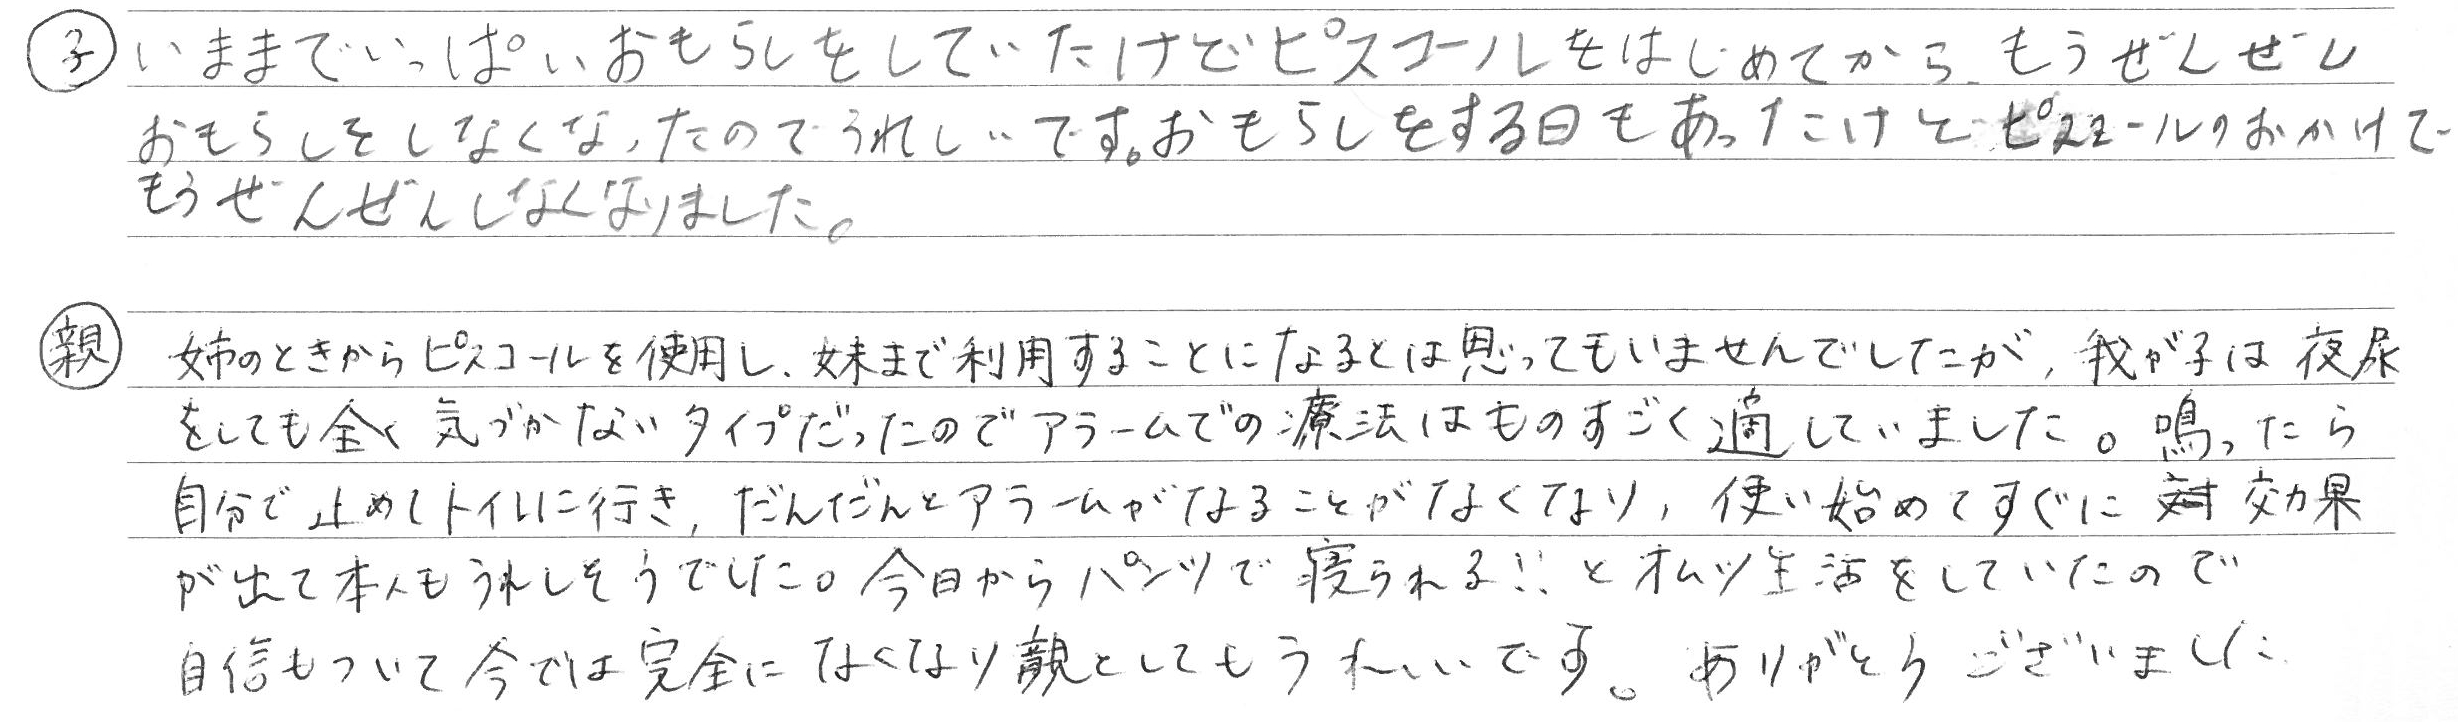 子 いままでいっぱいおもらしをしていたけどピスコールをはじめてから、もうぜんぜん
おもらしをしなくなったのでうれしいです。おもらしをする日もあったけどピスコールのおかげで
もうぜんぜんしなくなりました。
親 姉のときからピスコールを使用し、妹まで利用することになるとは思ってもいませんでしたが、我が子は夜尿
をしても全く気づかないタイプだったのでアラームでの療法はものすごく適していました。鳴ったら
自分で止めてトイレに行き、だんだんとアラームがなることがなくなり、使い始めてすぐに効果
が出て本人もうれしそうでした。今日からパンツで寝られる!!とオムツ生活をしていたので
自信もついて今では完全になくなり親としてもうれしいです。ありがとうございました